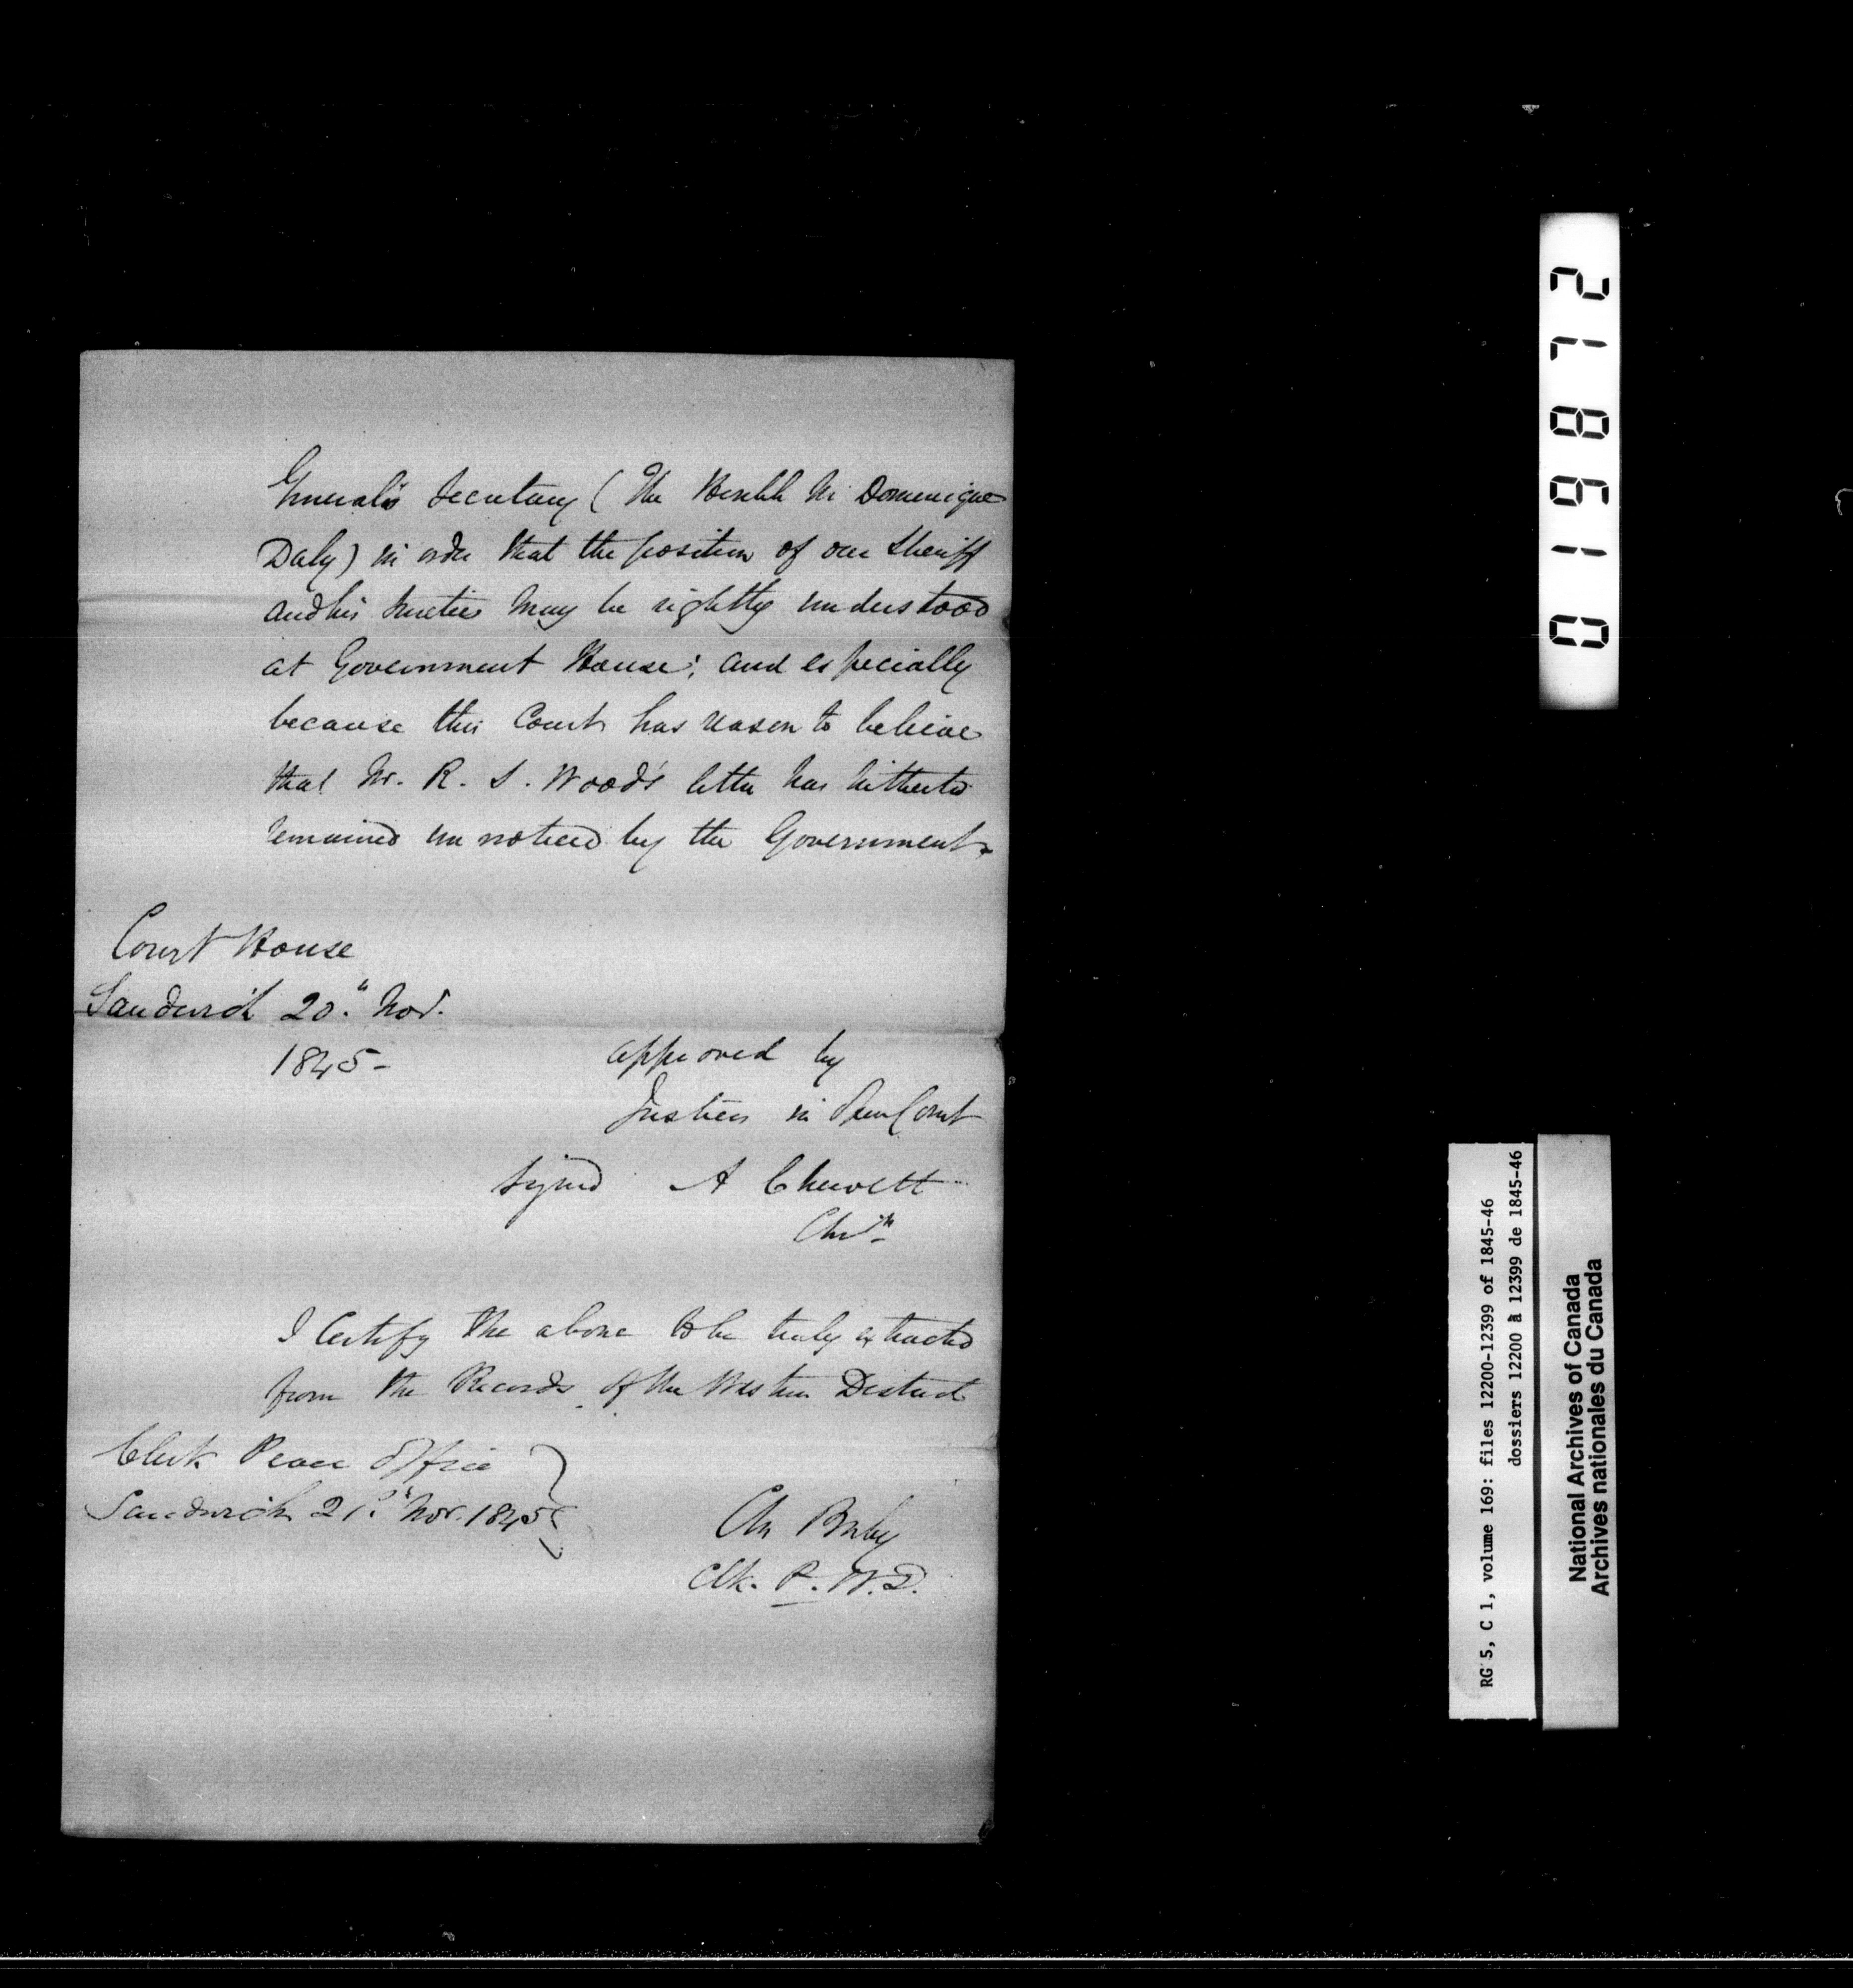 General's Secretary (The Honble Mr Domenique
Daly) in order that the position of our Sheriff
and his sureties may be rightly understood
at Government House; and especially
because this Court has reason to believe
that Mr. R. S. Wood's letter has hitherto
remained unnoticed by the Government.
Court House
Sandwich 20th Nov.
1845-
approved by
Justices in Open Court
signed A Chewett
Chrn
I Certify the above to be truly extracted
from the Records of the Western District
Clerk Peace Office
Sandwich 21st Nov. 1845
Chs Baby
Clk. P. W.D.
019872
RG 5, C 1, volume 169: files 12200-12399 of 1845-46
dossiers 12200 à 12399 de 1845-46
National Archives of Canada
Archives nationales du Canada